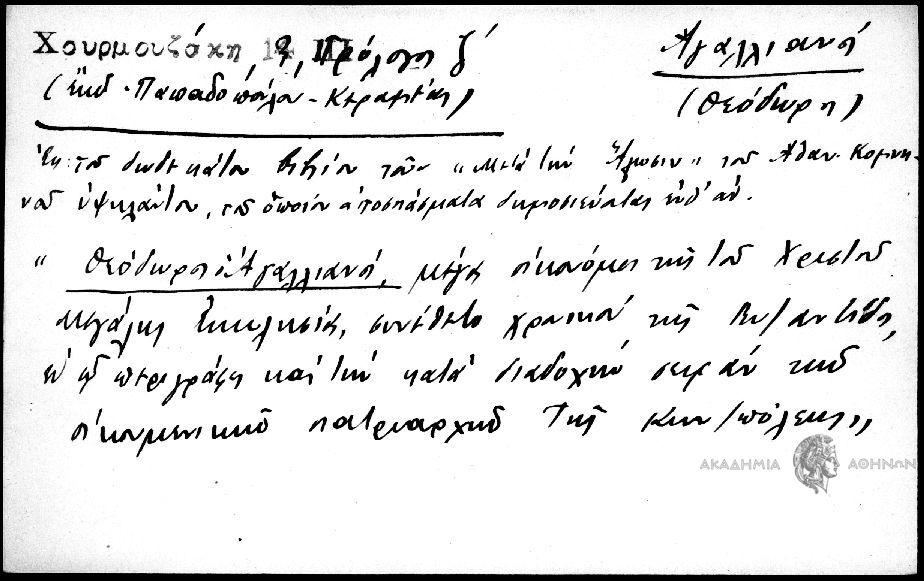 Χουρμουζάκη 13 III, Πρόλογος ζ΄
(ἔκδ. Παπαδοπούλου-Κεραμέως)
Ἀγαλλιανός
(Θεόδωρος)
Ἐκ τοῦ δωδεκάτου βιβλίου τῶν "Μετὰ τὴν Ἅλωσιν" τοῦ Ἀθαν. Κομνη-
νοῦ Ὑψηλάντου, τοῦ ὁποίου ἀποσπάσματα δημοσιεύονται ἐνθ' ἀν.
" Θεόδωρος ὁ Ἀγαλλιανός, μέγας οἰκονόμος τῆς τοῦ Χριστοῦ
μεγάλης Ἐκκλησίας, συνέθετο χρονικόν τῆς Βυζαντίδος,
ἐν ᾧ περιγράφει καὶ τὴν κατὰ διαδοχὴν σειρὰν τῶν
οἰκουμενικῶν πατριαρχῶν τῆς Κων/πόλεως,,
ΑΚΑΔΗΜΙΑ ΑΘΗΝΩΝ